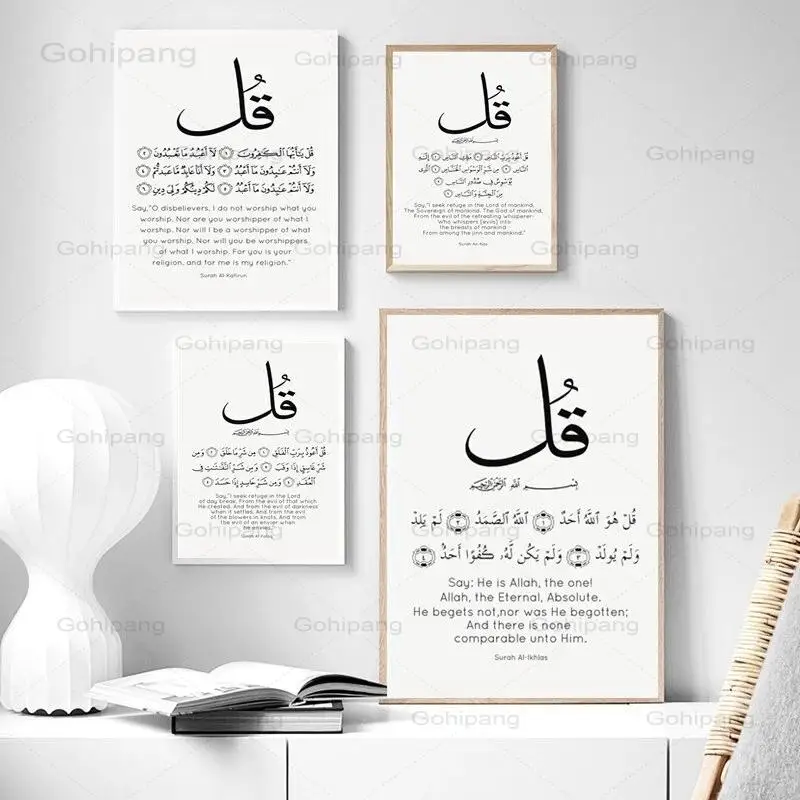 قُل
قُلْ يَٰٓأَيُّهَا ٱلْكَٰفِرُونَ ١ لَآ أَعْبُدُ مَا تَعْبُدُونَ ٢
وَلَآ أَنتُمْ عَٰبِدُونَ مَآ أَعْبُدُ ٣ وَلَآ أَنَا۠ عَابِدٌ مَّا عَبَدتُّمْ ٤
وَلَآ أَنتُمْ عَٰبِدُونَ مَآ أَعْبُدُ ٥ لَكُمْ دِينُكُمْ وَلِىَ دِينِ ٦
Say,"O disbelievers, I do not worship what you
worship. Nor are you worshipper of what I
worship. Nor will I be a worshipper of what
you worship. Nor will you be worshippers
of what I worship. For you is your
religion, and for me is my religion."
Surah Al-Kafirun
قُل
قُلْ أَعُوذُ بِرَبِّ ٱلنَّاسِ ١ مَلِكِ ٱلنَّاسِ ٢ إِلَٰهِ
ٱلنَّاسِ ٣ مِن شَرِّ ٱلْوَسْوَاسِ ٱلْخَنَّاسِ ٤ ٱلَّذِى
يُوَسْوِسُ فِى صُدُورِ ٱلنَّاسِ ٥
مِنَ ٱلْجِنَّةِ وَٱلنَّاسِ ٦
Say,"I seek refuge in the Lord of mankind,
The Sovereign of mankind, The God of mankind,
From the evil of the retreating whisperer-
Who whispers [evils] into
the breasts of mankind
From among the jinn and mankind."
Surah An-Nas
قُل
قُلْ أَعُوذُ بِرَبِّ ٱلْفَلَقِ ١ مِن شَرِّ مَا خَلَقَ ٢ وَمِن
شَرِّ غَاسِقٍ إِذَا وَقَبَ ٣ وَمِن شَرِّ ٱلنَّفَّٰثَٰتِ فِى
ٱلْعُقَدِ ٤ وَمِن شَرِّ حَاسِدٍ إِذَا حَسَدَ ٥
Say,"I seek refuge in the Lord
of day break. From the evil of that which
He created. And from the evil of darkness
when it settles. And from the evil
of the blowers in knots, And from
the evil of an envier when
he envies."
Surah Al Falaq
قُل
بِسْمِ ٱللَّهِ ٱلرَّحْمَٰنِ ٱلرَّحِيمِ
قُلْ هُوَ ٱللَّهُ أَحَدٌ ١ ٱللَّهُ ٱلصَّمَدُ ٢ لَمْ يَلِدْ
وَلَمْ يُولَدْ ٣ وَلَمْ يَكُن لَّهُۥ كُفُوًا أَحَدٌۢ ٤
Say; He is Allah, the one!
Allah, the Eternal, Absolute.
He begets not,nor was He begotten;
And there is none
comparable unto Him.
Surah Al-Ikhlas
Gohipang